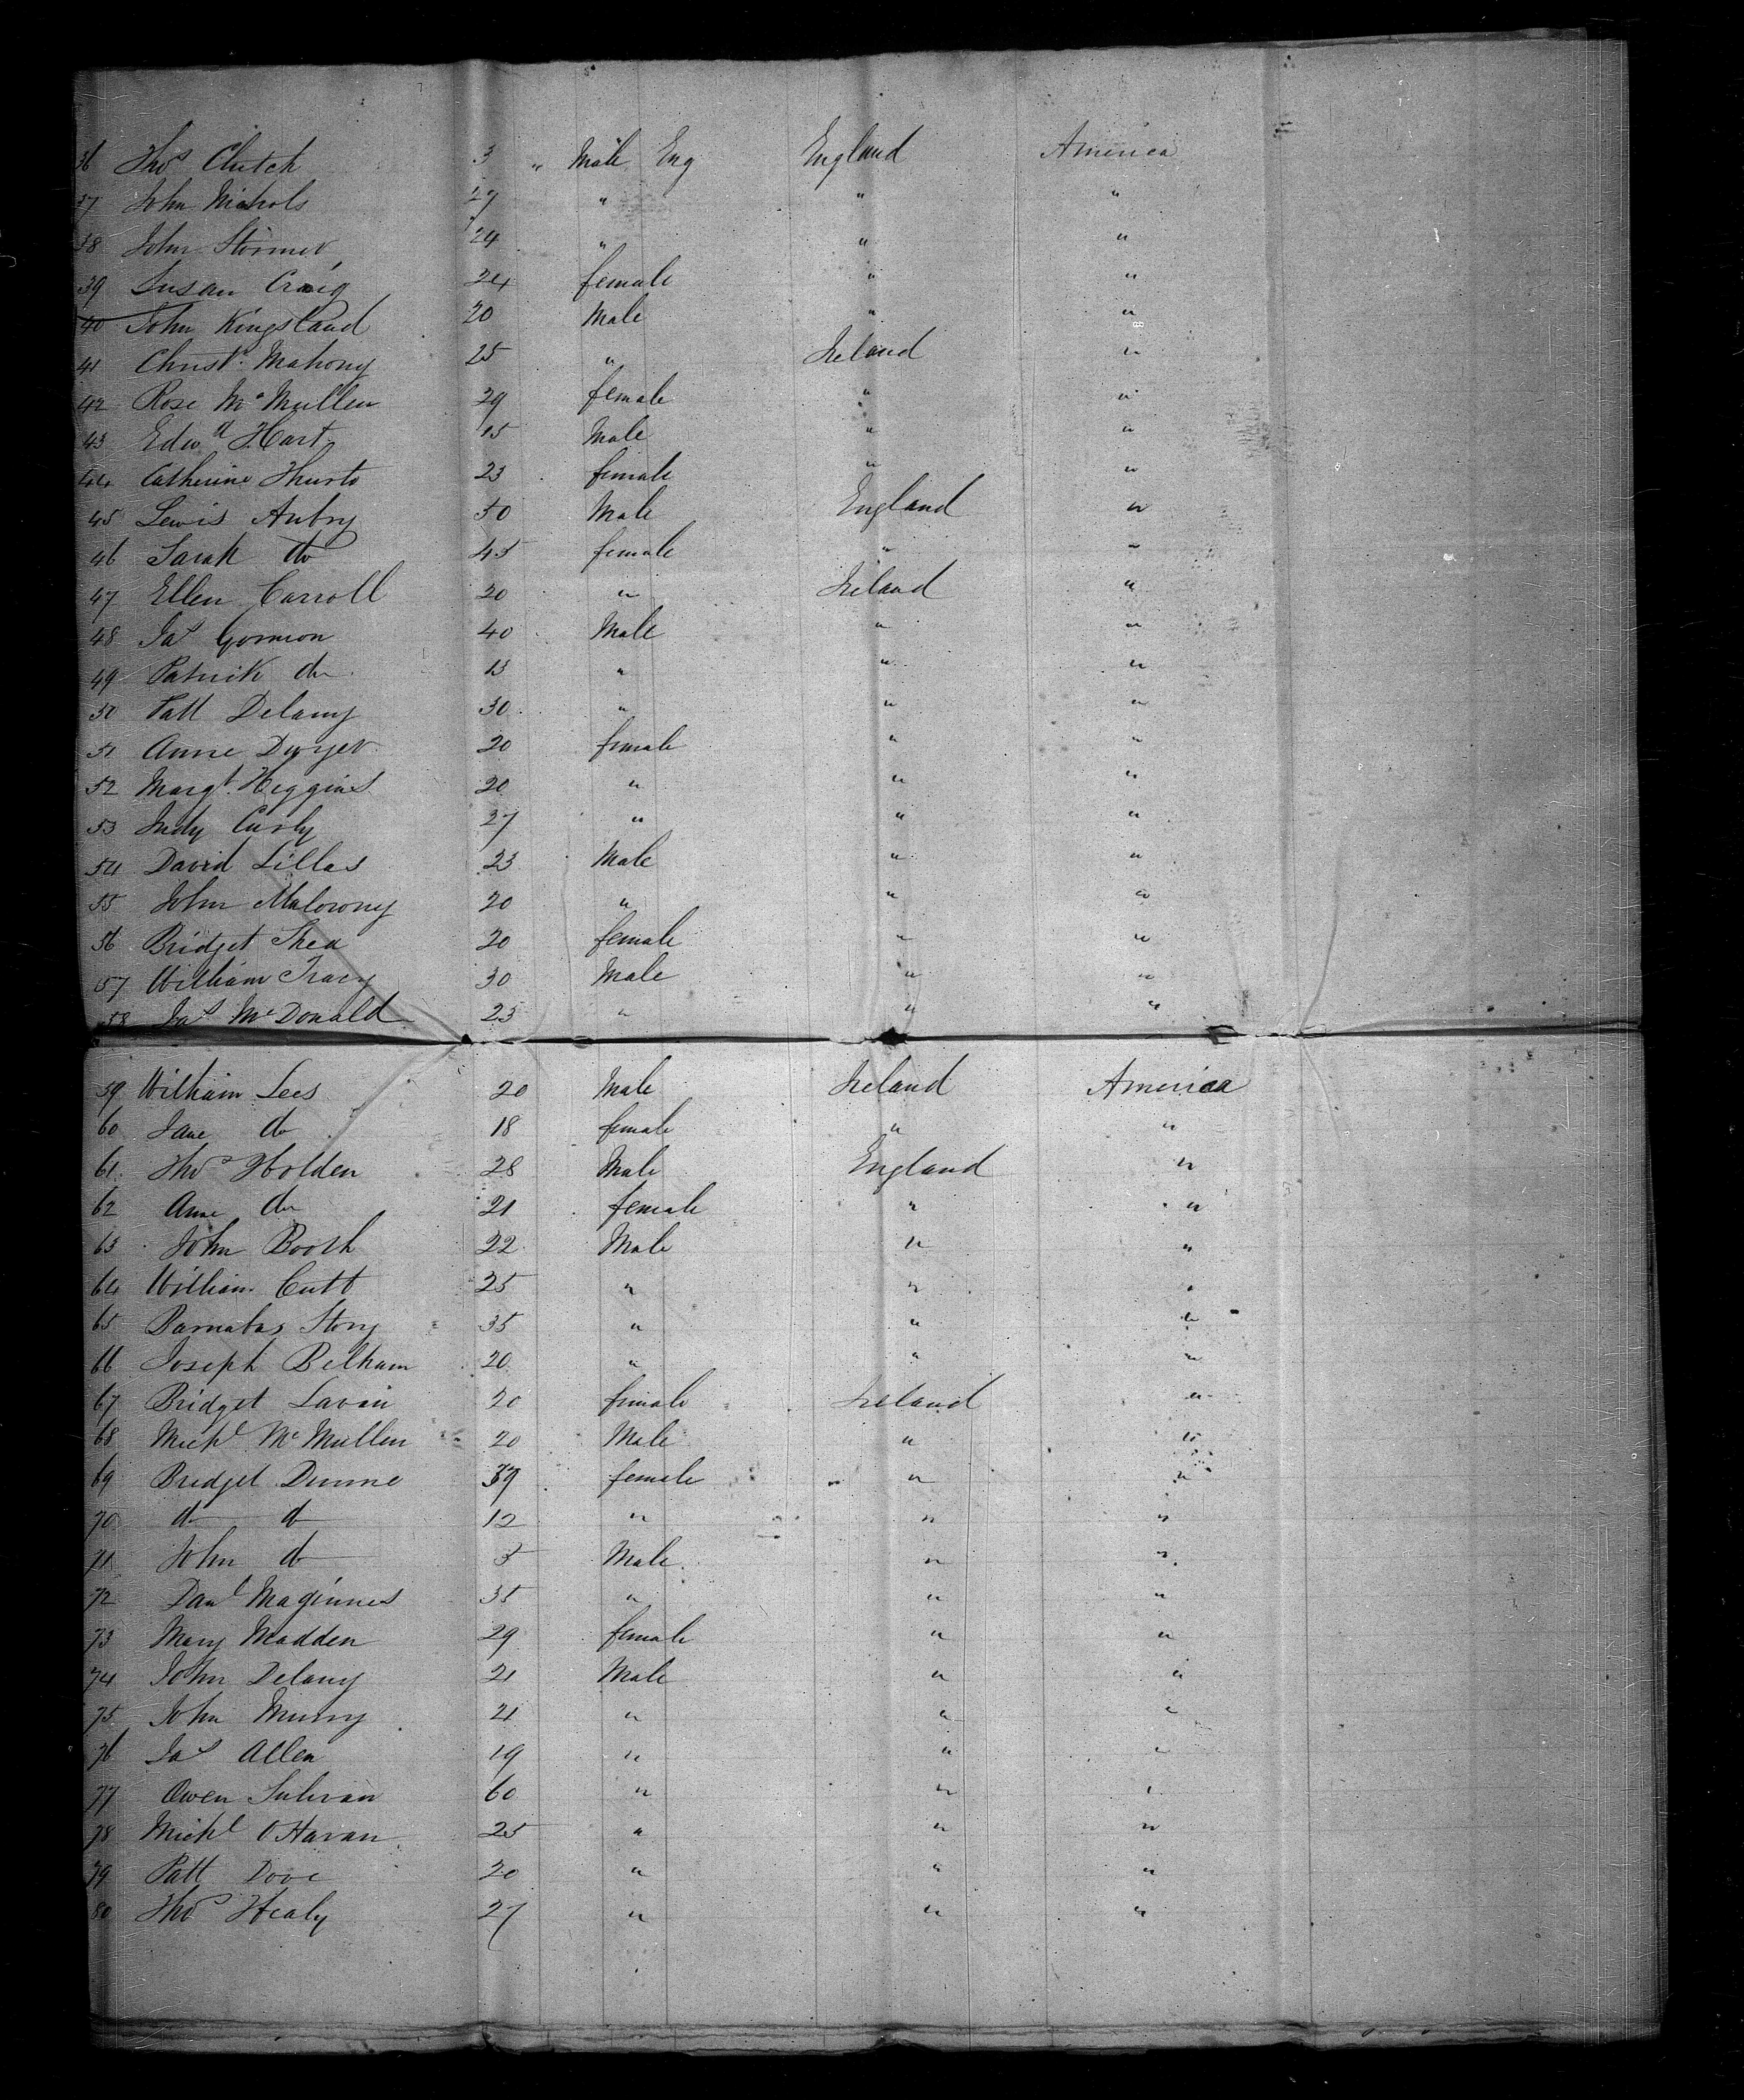 36 Thos Clutch 3 " Male Eng England America
37 John Nichols 27 " " "
38 John Stormer 24 " " "
39 Susan Craig 24 female " "
40 John Kingsland 20 Male " "
41 Christr Mahony 25 " Ireland "
42 Rose Mc Mullen 29 female " "
43 Edwd Hart 15 Male " "
44 Catherine 23 female " "
45 Lewis Aubry 50 Male England "
46 Sarah do 45 female " "
47 Ellen Carroll 20 " Ireland "
48 Jas Gormon 40 Male " "
49 Patrick do 13 " " "
50 Patt Delany 30 " " "
51 Anne Dwyer 20 female " "
52 Margt Higgins 20 " " "
53 Judy 27 " " "
54 David Lillas 23 Male " "
55 John Malowny 20 " " "
56 Bridget Shea 20 female " "
57 William Tracy 30 Male " "
58 Jas McDonald 23 " " "
59 William Lees 20 Male Ireland America
60 Jane do 18 female " "
61 Thos Holden 28 Male England "
62 Anne do 21 female " "
63 John Booth 22 Male " "
64 William Cutt 25 " " "
65 Barnabas Story 35 " " "
66 Joseph Belham 20 " " "
67 Bridget Lavin 20 female Ireland "
68 Michl Mc Mullen 20 Male " "
69 Bridget Dunne 37 female " "
70 do do 12 " " "
71 John do 5 Male " "
72 Danl Maginnes 35 " " "
73 Mary Madden 29 female " "
74 John Delany 21 Male " "
75 John Murry 21 " " "
76 Jas Allen 19 " " "
77 Owen Sulivan 60 " " "
78 Michl O Haran 25 " " "
79 Patt Dove 20 " " "
80 Thos Healy 27 " " "